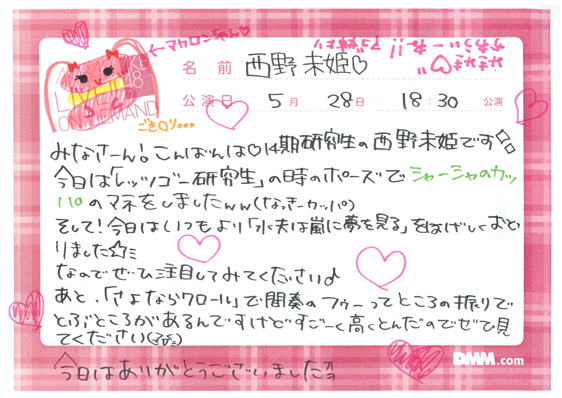 ←マカロンちゃん♡
ON DEMAND
ごきロリ…
名前 西野未姫♡
公演日 5月 28日 18:30 公演
みなさーん!こんばんは♡14期研究生の西野未姫です
今日は「レッツゴー研究生」の時のポーズでシャーシャのカッ
パのマネをしましたww(なっきーカッパ)
そして!今日はいつもより「水夫は嵐に夢を見る」をはげしくおど
りました☆ミ
なのでぜひ注目してみてください♪
あと、「さよならクロール」で間奏のフゥーってところの振りで
とぶところがあるんですけどすごーく高くとんだのでぜひ見
てください
今日はありがとうございました
DMM.com